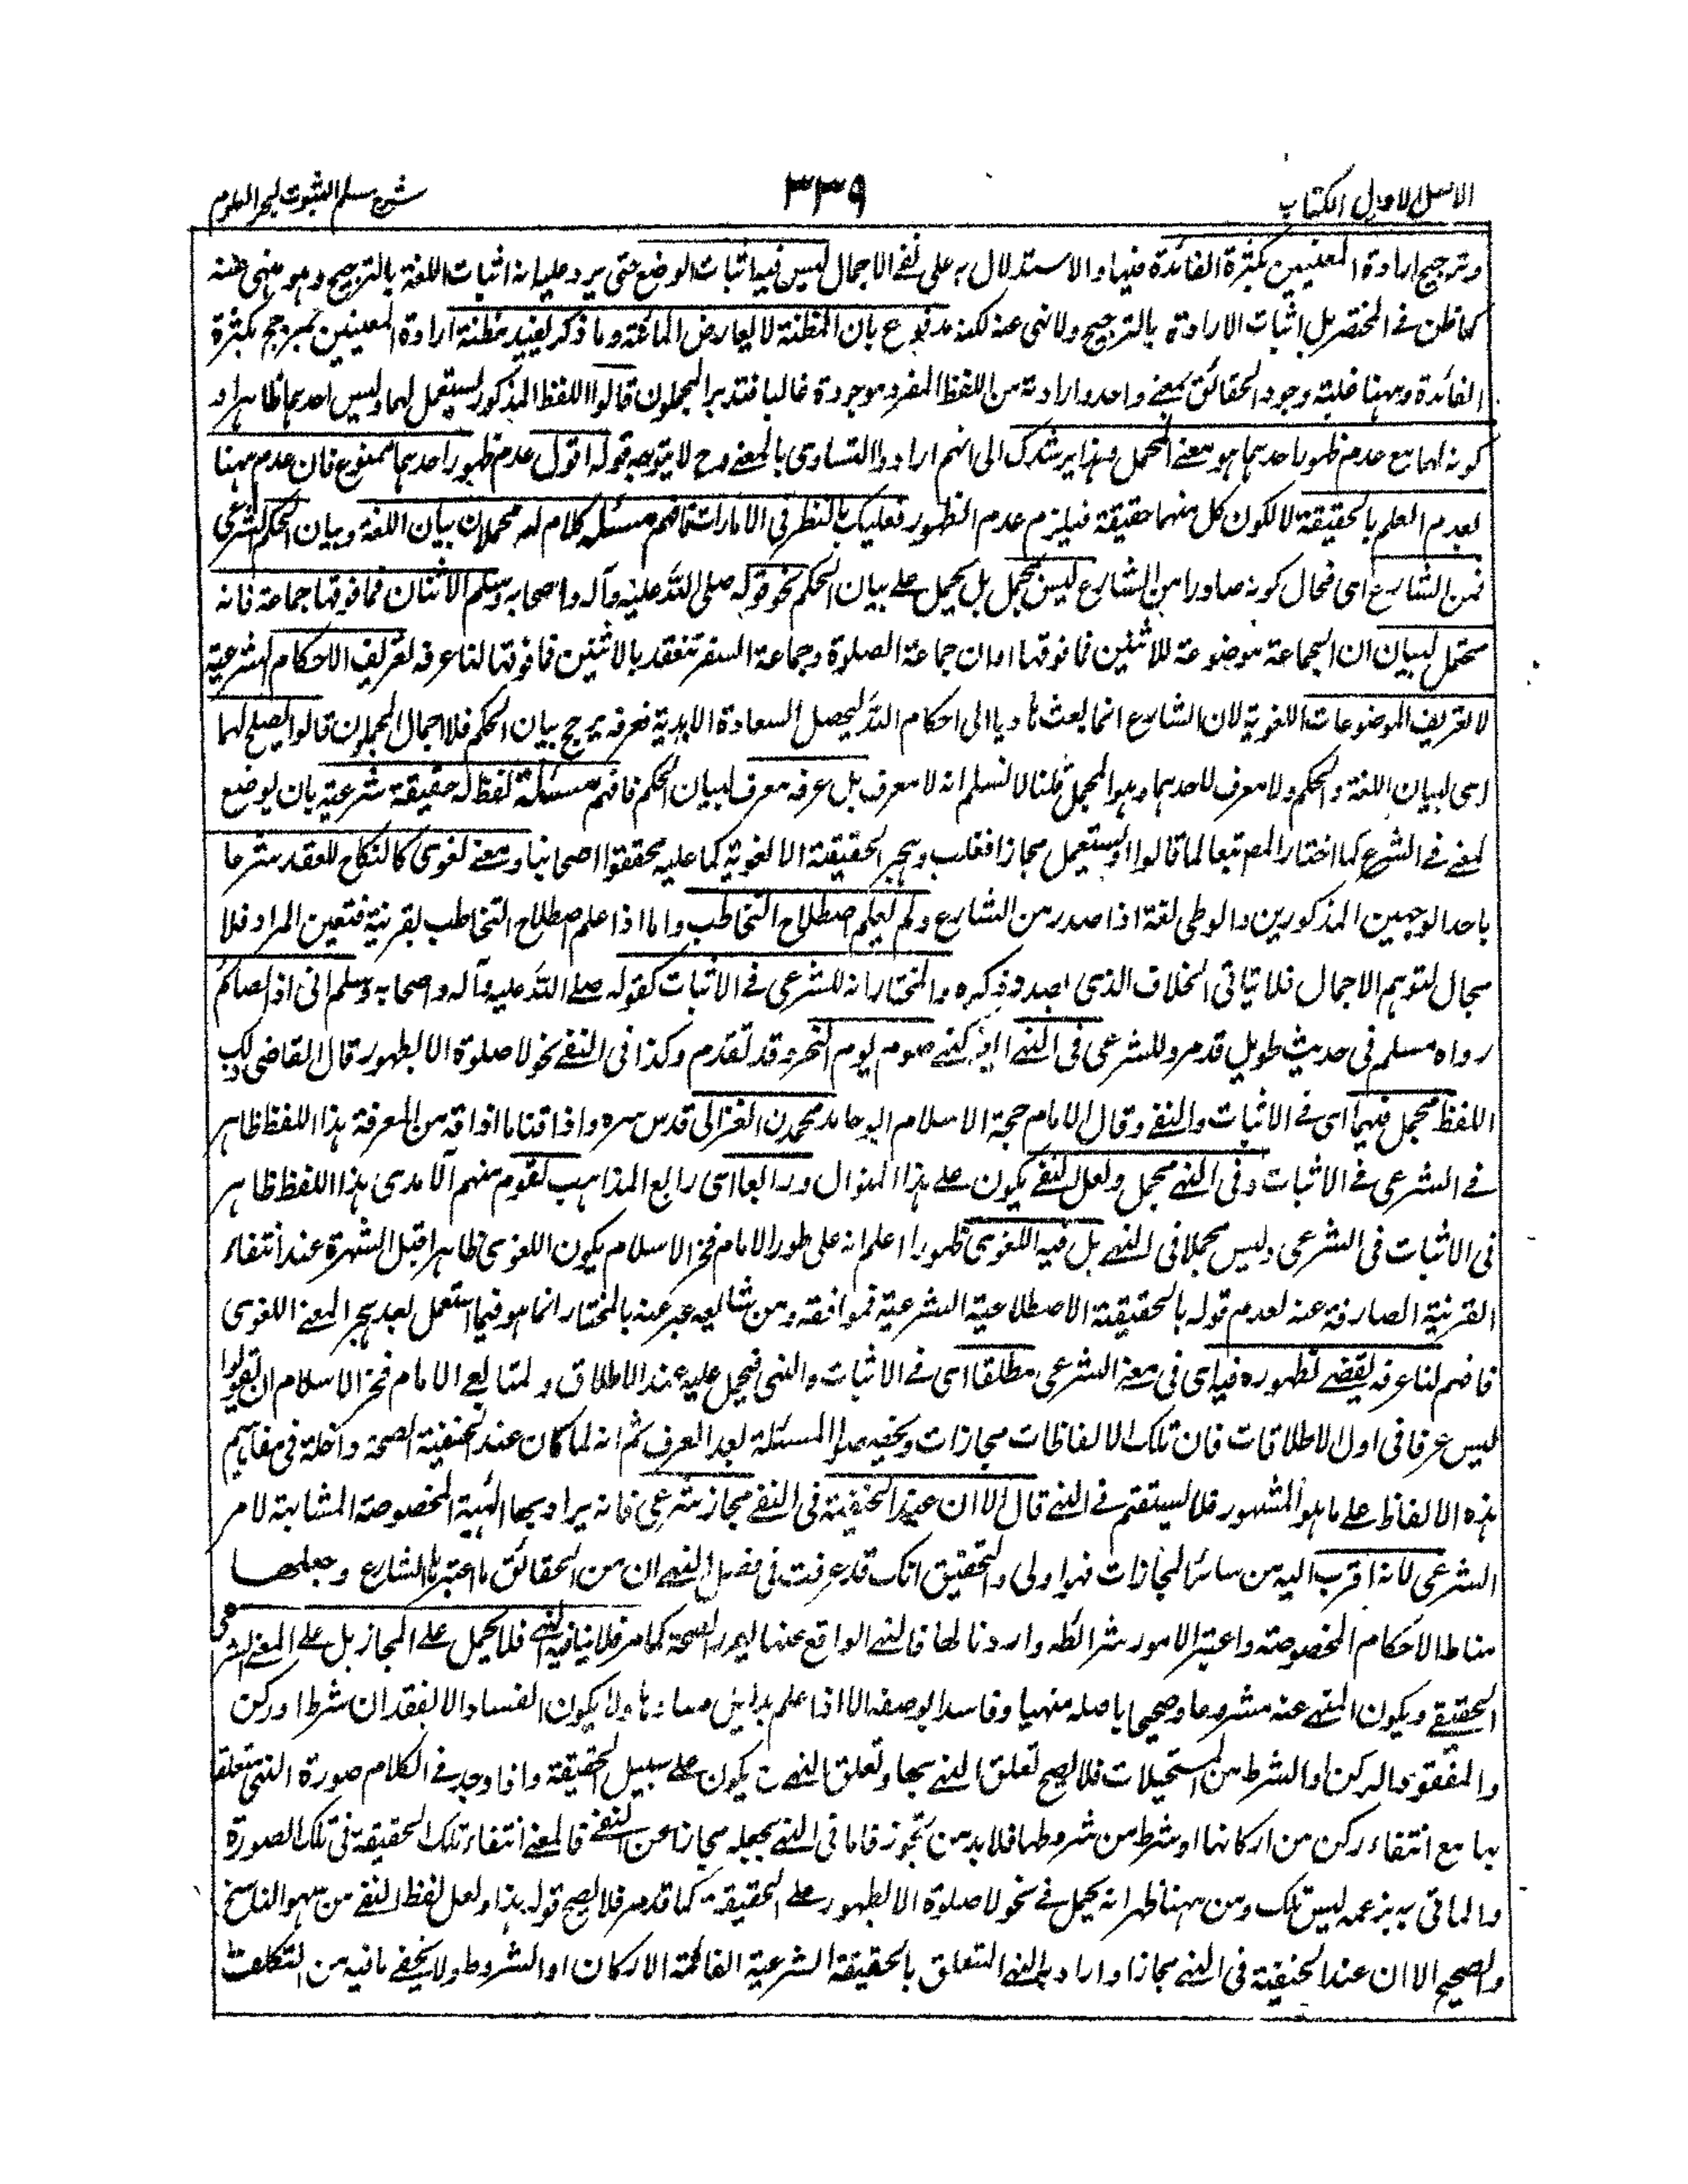 الاصل الاول الكتاب
٣٣٩
شرح مسلم الثبوت لبحر العلوم
وترجيح ارادة المعنيين بكثرة الفائدة فيها والاستدلال به على نفي الاجمال ليس فيه اثبات الوضع حتى يرد عليه انه اثبات اللغة بالترجيح وهو منهي عنه
كما ظن في المختصر بل اثبات الارادة بالترجيح ولا نهي عنه لكنه مدفوع بان المظنة لا يعارض المائنة وما ذكر يفيد مظنة ارادة المعنيين بمرجح بكثرة
الفائدة وههنا غلبة وجود الحقائق بمعنى واحد وارادته من اللفظ المفرد موجودة غالبا فتدبر المجملون قالوا اللفظ المذكور يستعمل لهما وليس احدهما ظاهرا و
كونه لهما مع عدم ظهور احدهما هو معنى المجمل وهذا يرشدك الى انهم ارادوا التساوي بالمعنى وح لا يتوجه قوله اقول عدم ظهور احدهما ممنوع فان عدم ههنا
لعدم العلم بالحقيقة لا لكون كل منهما حقيقة فيلزم عدم الظهور فعليك بالنظر في الامارات فافهم مسئلة كلام له محملان بيان اللغة وبيان الحكم الشرعي
فمن الشارع اى فحال كونه صادرا من الشارع ليس بمجمل بل يحمل على بيان الحكم نحو قوله صلى الله عليه وآله واصحابه وسلم الاثنان فما فوقها جماعة فانه
محتمل لبيان ان الجماعة موضوعة للاثنين فما فوقها او ان جماعة الصلوة وجماعة السفر تنعقد بالاثنين فما فوقها لنا عرفه لتعريف الاحكام الشرعية
لا لتعريف الموضوعات اللغوية لان الشارع انما بعث هاديا الى احكام الله ليحصل السعادة الابدية فعرفه يرجح بيان الحكم فلا اجمال المجملون قالوا يصلح لهما
اى لبيان اللغة والحكم ولا معرف لاحدهما وهو المجمل قلنا لا نسلم انه لا معرف بل عرفه معرف لبيان الحكم فافهم مسئلة لفظ له حقيقة شرعية بان يوضع
لمعنى في الشرع كما اختار المص تبعا لما قالوا او يستعمل مجازا فغلب وهجر الحقيقة اللغوية كما عليه محققوا اصحابنا ومعنى لغوى كالنكاح للعقد شرعا
باحد الوجهين المذكورين والوطى لغة اذا صدر من الشارع ولم يعلم اصطلاح التخاطب واما اذا علم اصطلاح التخاطب بقرينة فتعين المراد فلا
مجال لتوهم الاجمال فلا يتاتى الخلاف الذى بصدد ذكره والمختار انه للشرعى في الاثبات كقوله صلى الله عليه وآله واصحابه وسلم انى اذا لصائم
رواه مسلم فى حديث طويل قد مر وللشرعى فى النهى ايضا كنهى صوم يوم النحر وقد تقدم وكذا فى النفى نحو لا صلوة الا بطهور قال القاضى
اللفظ مجمل فيهما اى في الاثبات والنفى وقال الامام حجة الاسلام ابو حامد محمدن الغزالى قدس سره واذاقنا ما اذاقه من المعرفة هذا اللفظ ظاهر
في الشرعى في الاثبات وفى النهى مجمل ولعل النفى يكون على هذا المنوال ورابعا اى رابع المذاهب لقوم منهم الآمدى هذا اللفظ ظاهر
فى الاثبات فى الشرعى وليس مجملا فى النهى بل فيه اللغوى ظهورا اعلم انه على طور الامام فخر الاسلام يكون اللغوى ظاهرا قبل الشهرة عند انتفاء
القرينة الصارفة عنه لعدم قوله بالحقيقة الاصطلاحية الشرعية فموافقه ومن شايعه عبر عنه بالمختار انما هو فيما استعمل بعد هجر المعنى اللغوى
فافهم لنا عرفه يقضى لظهوره فيه اى فى معناه الشرعى مطلقا اى في الاثبات والنهى فيحمل عليه عند الاطلاق ولمتابعى الامام فخر الاسلام ان يقولوا
ليس عرفا فى اول الاطلاقات فان تلك الالفاظ مجازات ويخصصوا المسئلة بعد العرف ثم انه لما كان عند الحنفية الصحة داخلة فى مفاهيم
هذه الالفاظ على ما هو المشهور فلا يستقيم في النهى قال الا ان عند الحنفية فى النفى مجاز شرعى فانه يراد بها الهيئة المخصوصة المشابهة لامر
الشرعى لانه اقرب اليه من سائر المجازات فهو اولى والتحقيق انك قد عرفت فى فصل النهى ان من الحقائق ما اعتبرها الشارع وجعلها
مناط الاحكام المخصوصة واعتبر الامور شرائطه واركانا لها فالنهى الواقع عنها الصحة كما مر فلا ينافيه النهى فلا يحمل على المجاز بل على المعنى الشرعى
الحقيقى ويكون المنهى عنه مشروعا وصحيحا باصله منهيا وفاسدا بوصفه الا اذا علم بدليل ولا يكون الفساد الا لفقدان شرط او ركن
والمفقود الركن او الشرط من المستحيلات فلا يصح تعلق النهى بها وتعلق النهى ح يكون على سبيل الحقيقة واذا وجد في الكلام صورة النهى متعلقا
بها مع انتفاء ركن من اركانها او شرط من شروطها فلا بد من تجوز فاما فى النهى بجعله مجازا عن النفى فالمعنى انتفاء تلك الحقيقة فى تلك الصورة
والماتى به بزعمه ليس تلك ومن ههنا ظهر انه يحمل في نحو لا صلوة الا بطهور على الحقيقة كما قد مر فلا يصح قوله هذا ولعل لفظ النفى من سهو الناسخ
والصحيح الا ان عند الحنفية فى النهى مجازا واراد بالنهى المتعلق بالحقيقة الشرعية الفائتة الاركان او الشروط ولا يخفى ما فيه من التكلف